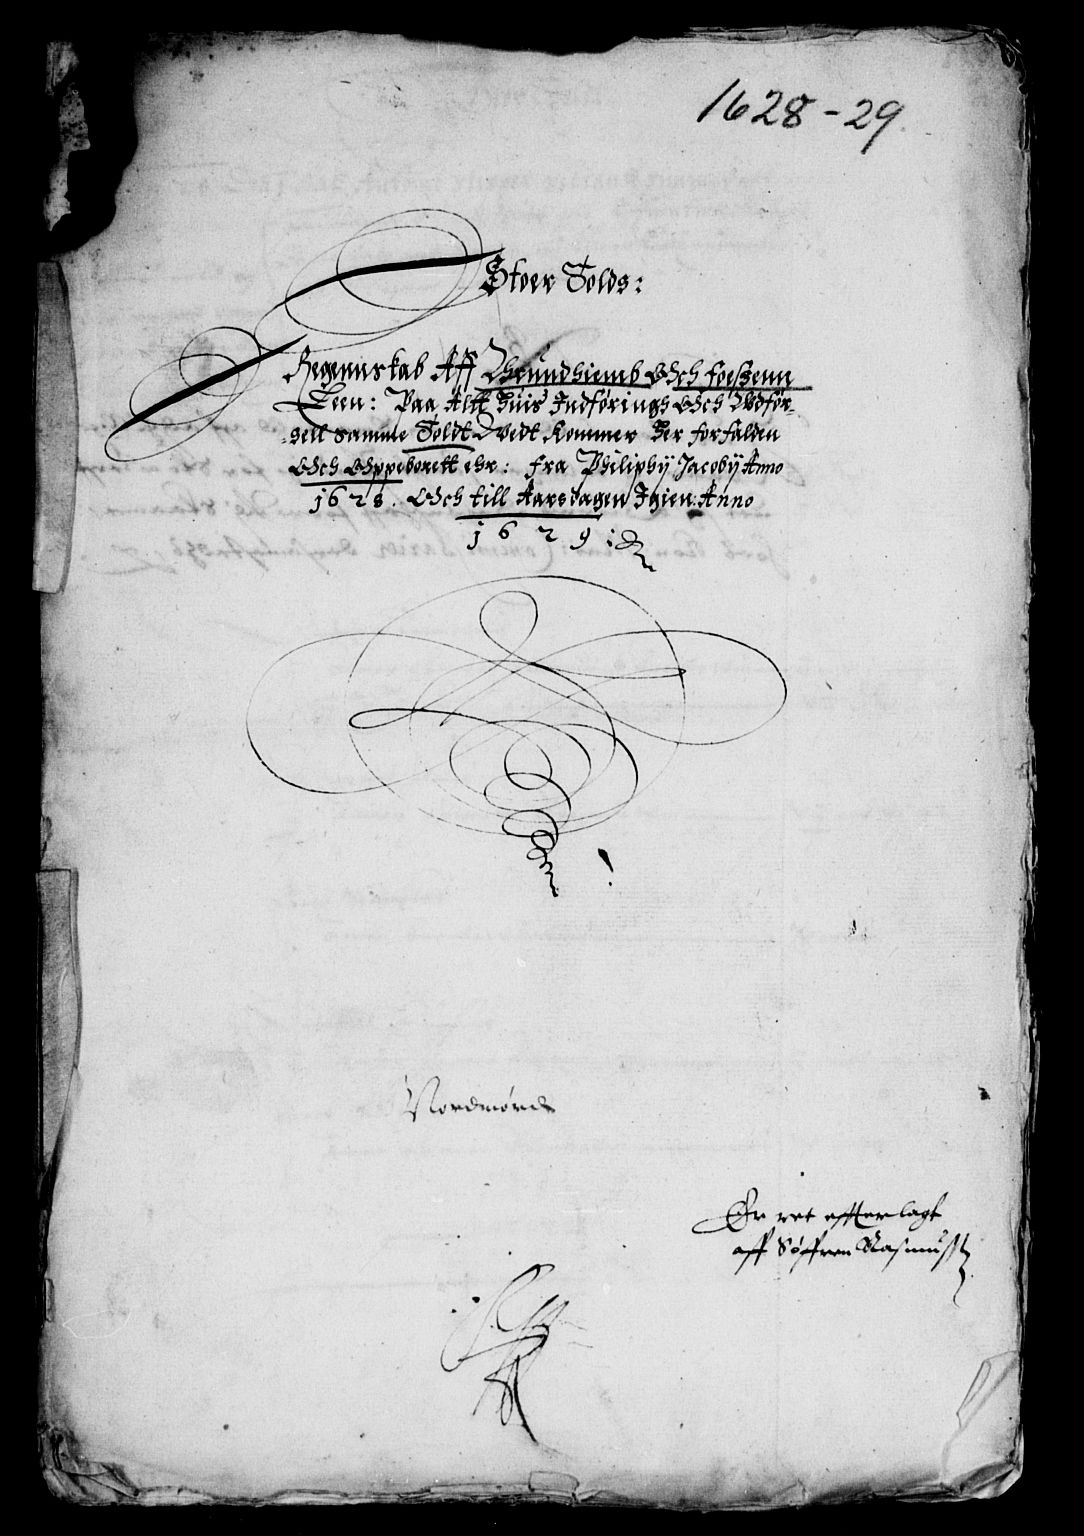 1628-29.
Stoer Tolds:
Regennskab Aff Thrundhiemb Och Foeszenn
Leen: Paa Altt Huis Indførings Och Wdfør-
sell samme Toldt Wedt Kommer Der forfalden
Och Oppeborett ehr: fra Philiphij Jacobij Anno
1628. Och till Aarsdagen Igien: Anno
1629:
Nordmørde
Er ret effter lagt
aff Søffren Rasmuss